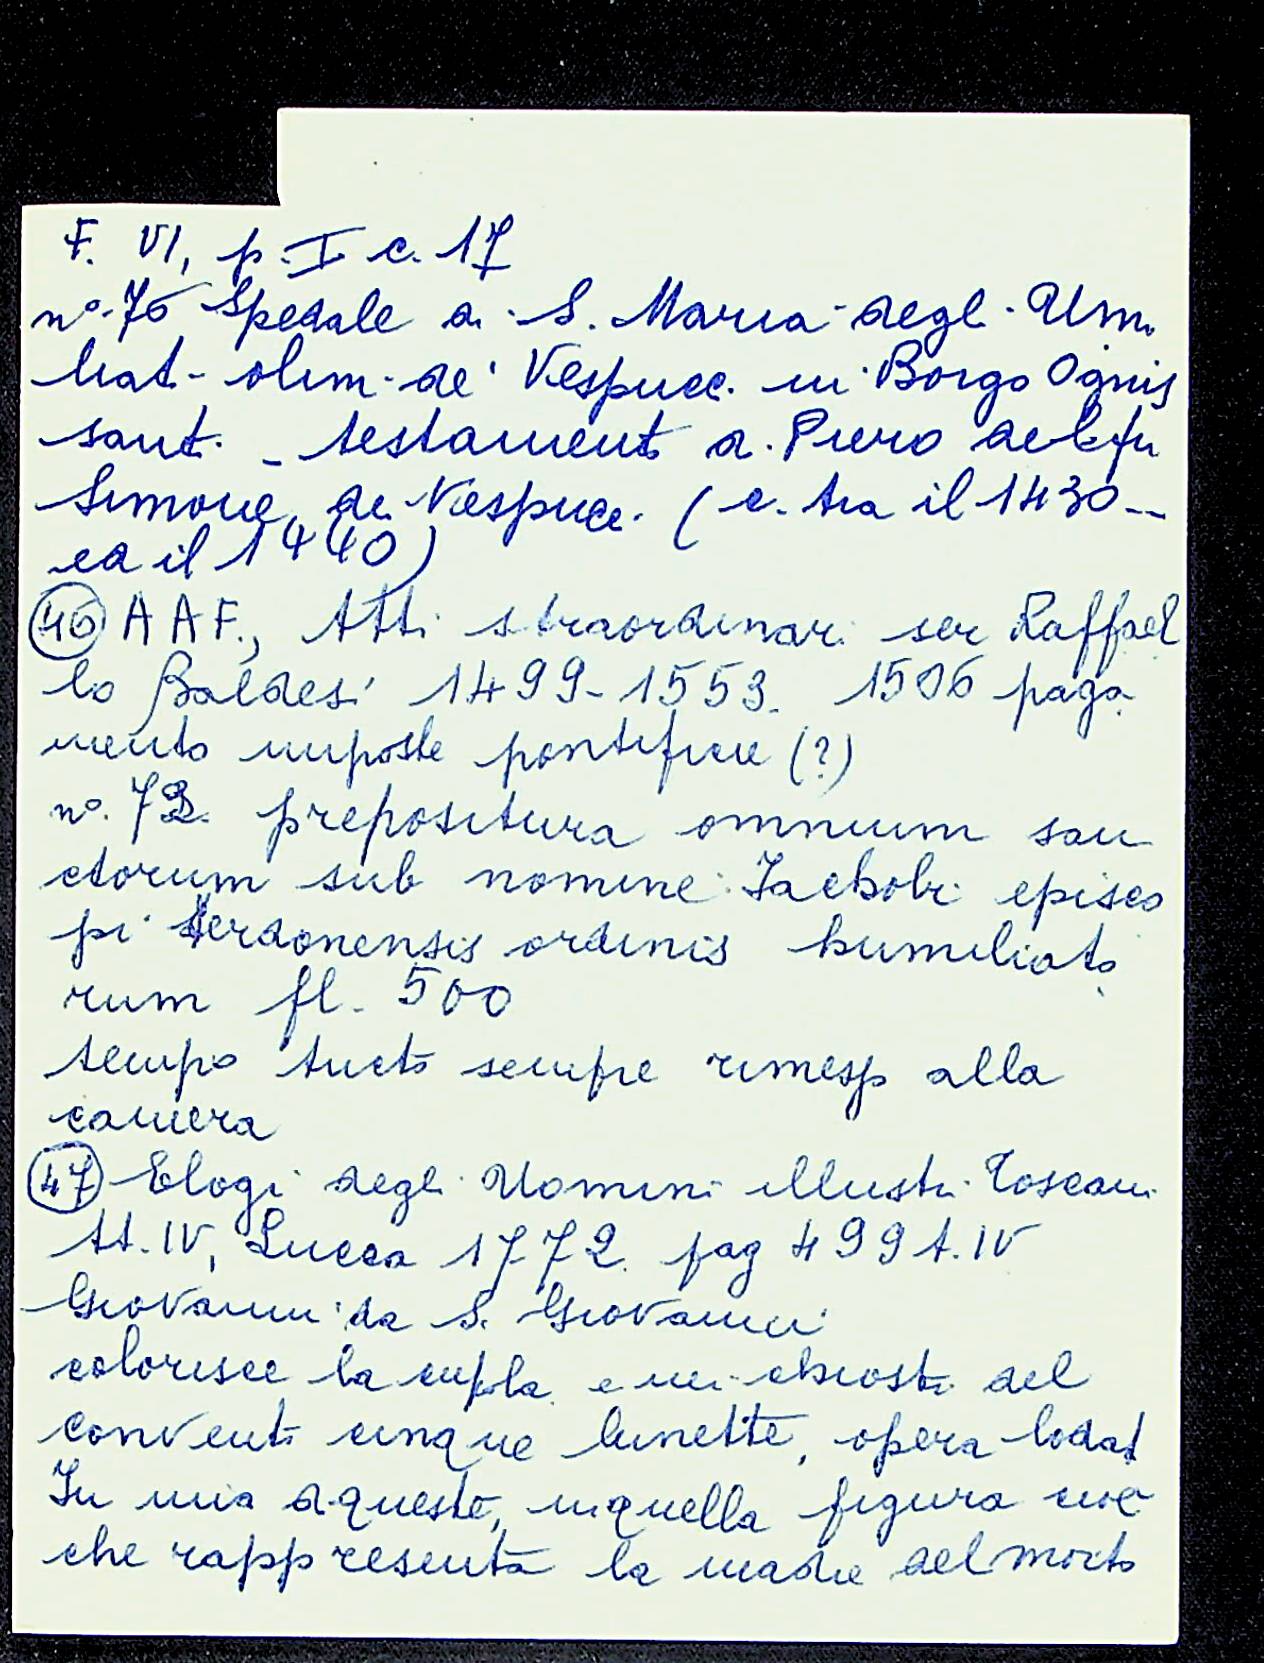 F. VI, p. I c. 17
n°. 76 Spedale di S. Maria degli Umi
liati olim de' Vespucci in Borgo Ognis
santi - testamento di Piero del fu
Simone de Vespucci. (c. tra il 1430 --
ed il 1440)
46 A A F., Atti straordinari ser Raffael
lo Baldesi 1499-1553. 1506 paga
mento imposte pontificie (?)
n°. 72. prepositura omnium san
ctorum sub nomine Jachobi episco
pi Terdonensis ordinis humiliato
rum fl. 500
tempo tucto sempre rimesp alla
camera
47 Elogi degli Uomini illustri Toscani
tt. IV, Lucca 1772. pag 499 t. IV
Giovanni da S. Giovanni
colorisce la cupla e nei chiostri del
convento cinque lunette, opera lodat
In una di queste, in quella figura cioè
che rappresenta la madre del morto